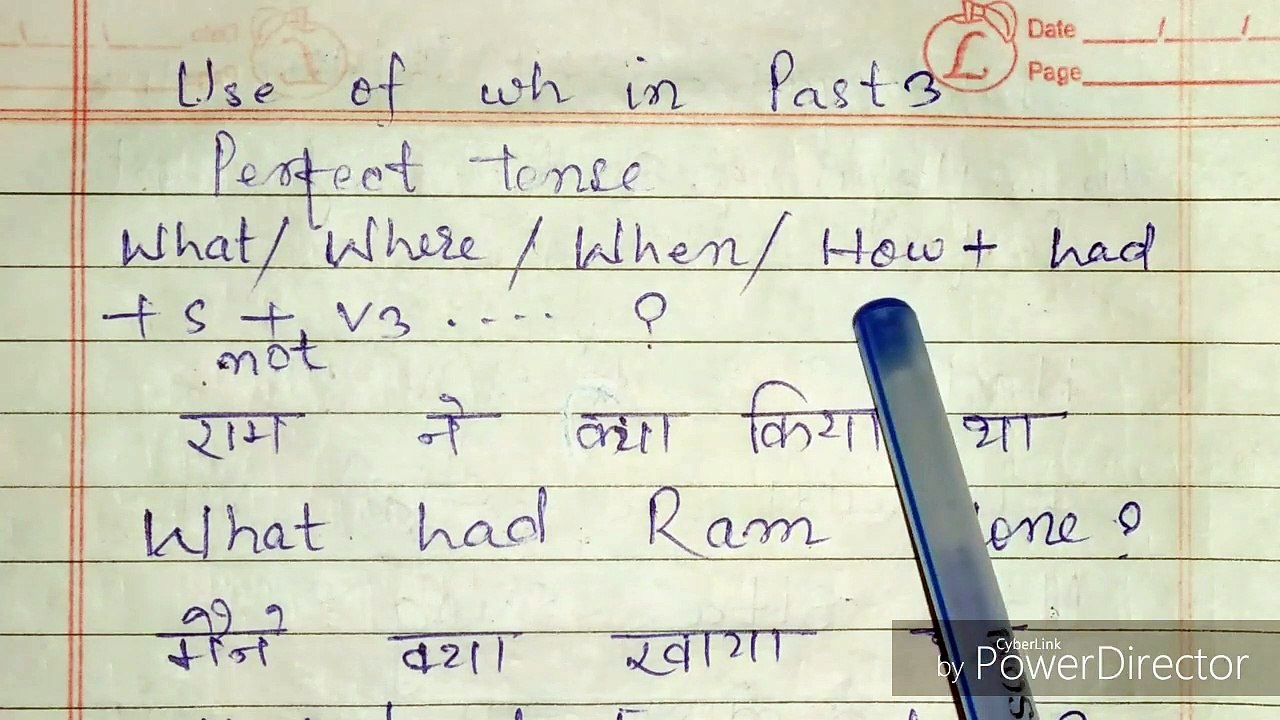 Date __/__/__
Page
Use of wh in Past
Perfect tense
What/ Where / When/ How + had
+ S + V3 .... ?
not
राम ने क्या किया था
What had Ram ?
मैंने क्या खाया
CyberLink
by PowerDirector